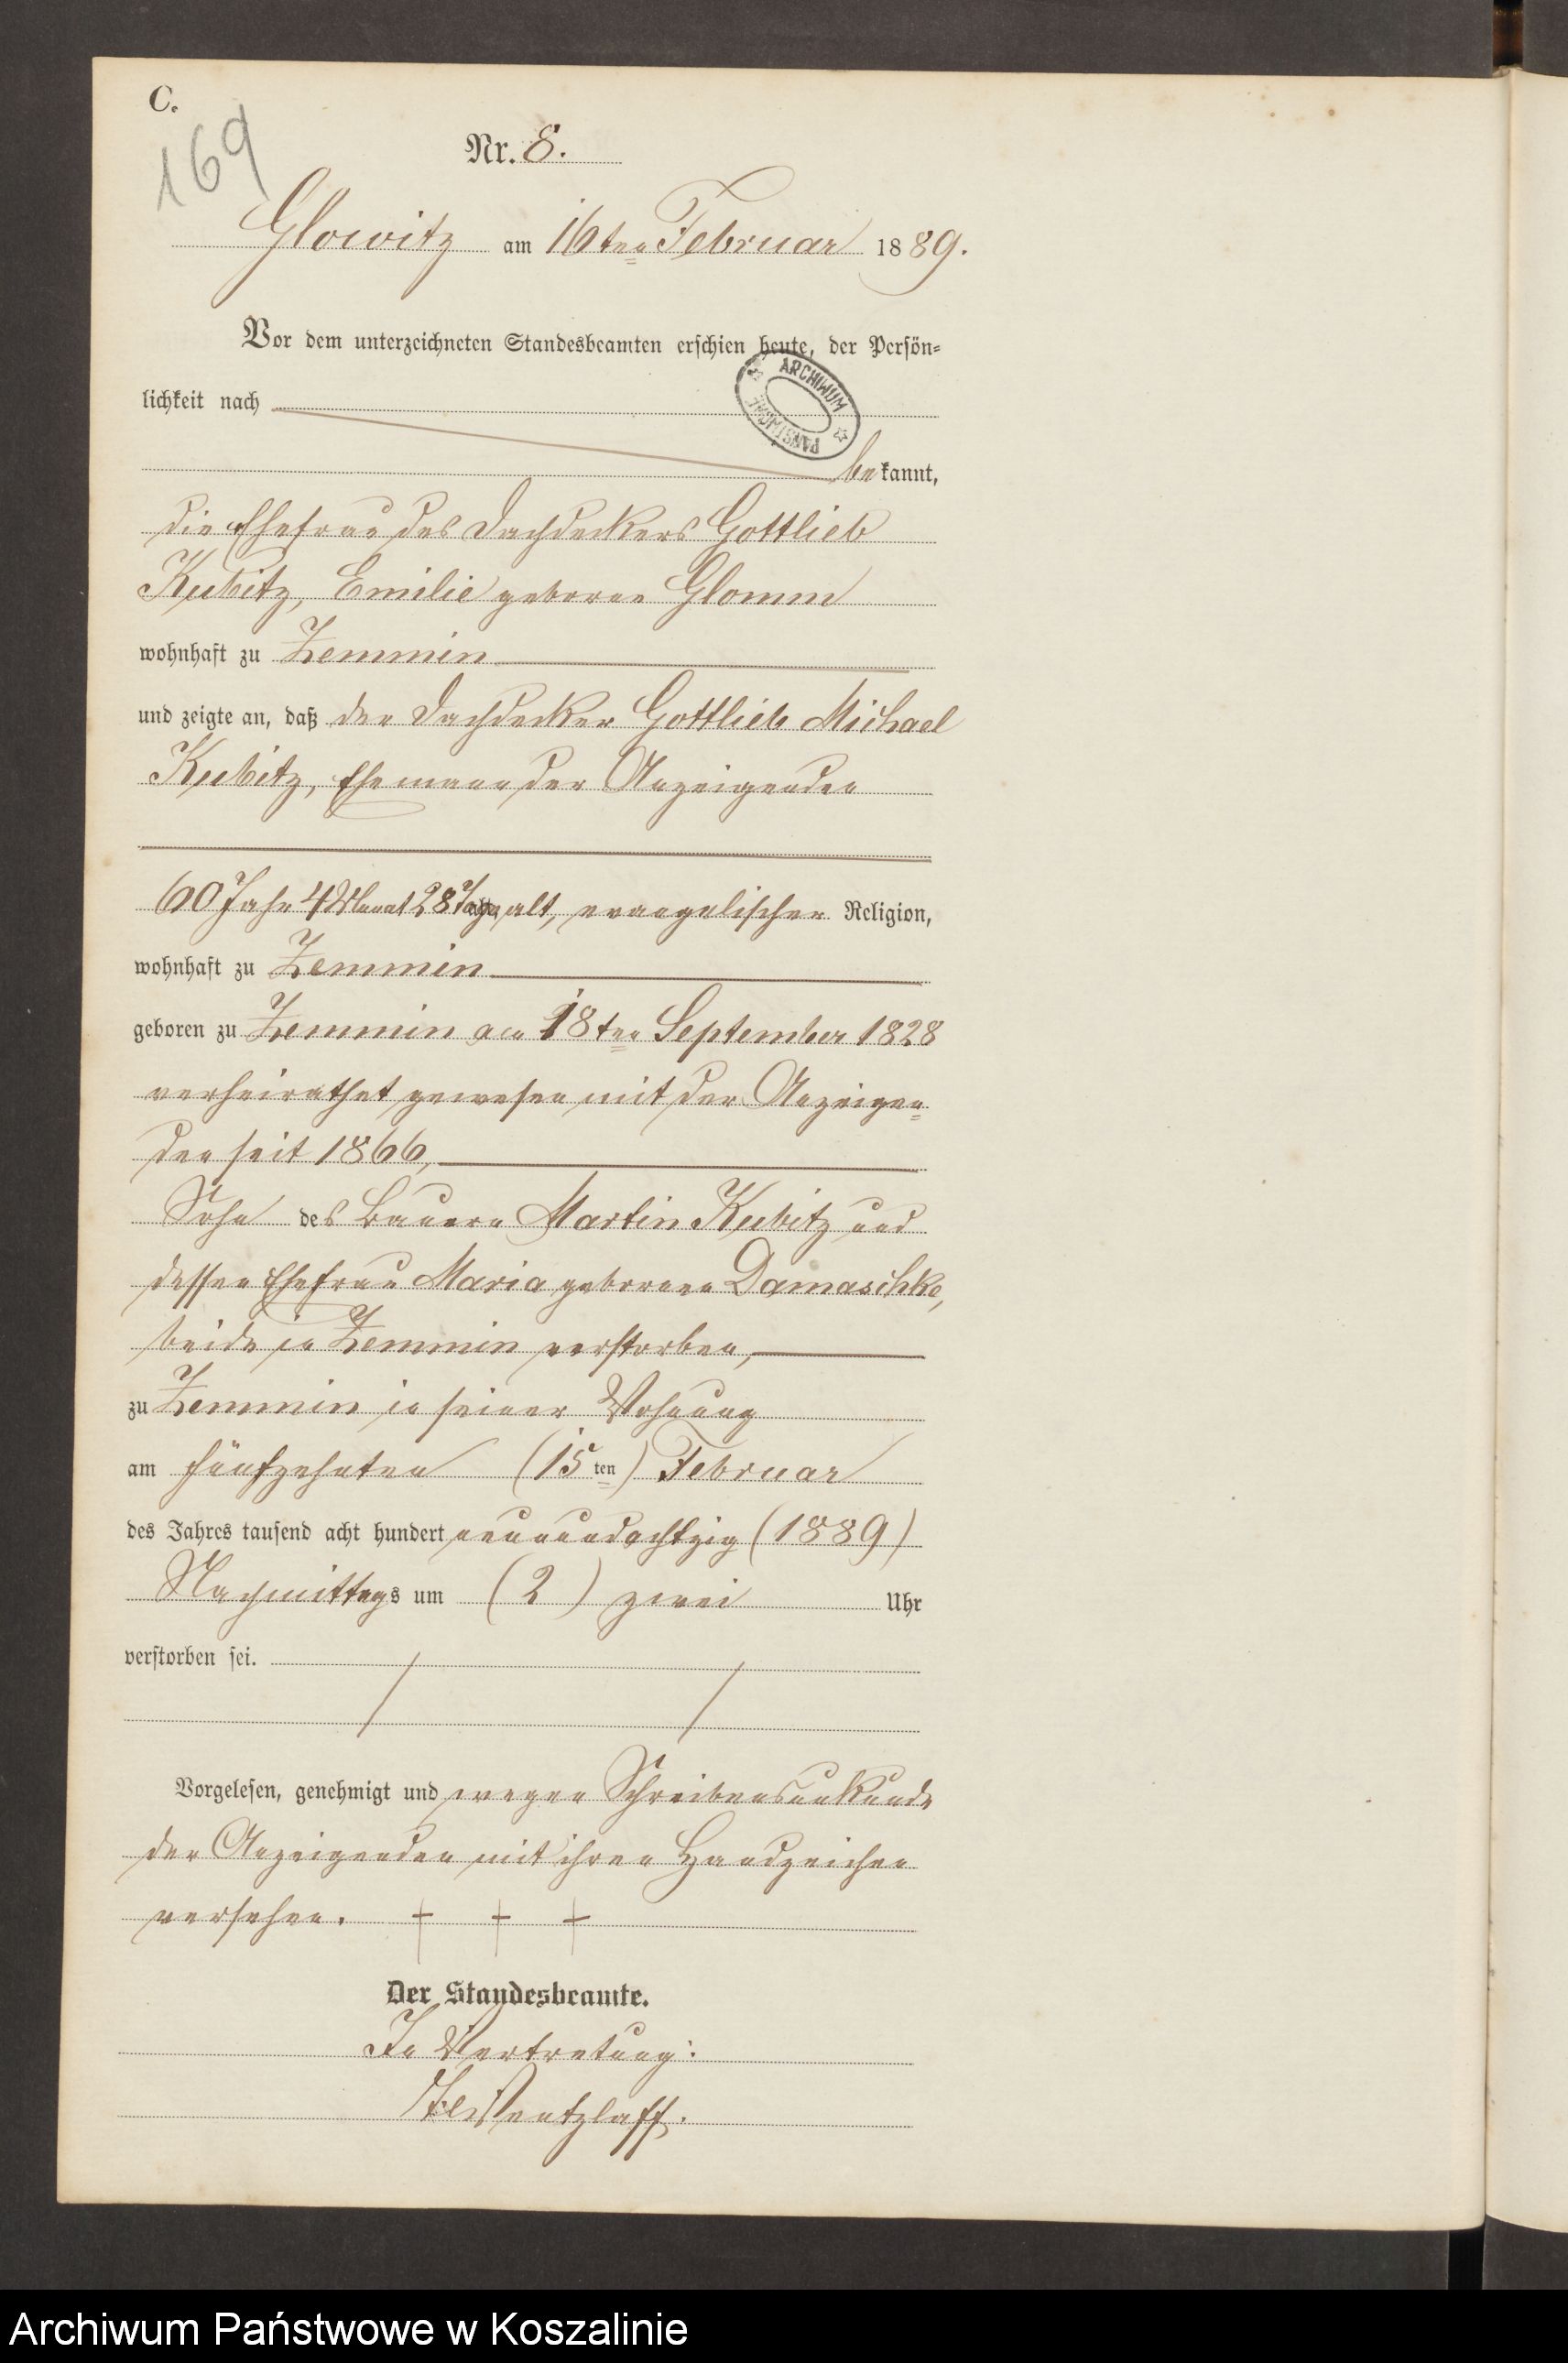 C.
169
Nr. 8.
Glowitz am 16ten Februar 1889.
Vor dem unterzeichneten Standesbeamten erschien heute, der Persön-
lichkeit nach
ARCHIWUM
PAŃSTWOWE
bekannt,
die Ehefrau des Dachdeckers Gottlieb
Kubitz, Emilie geborne Glomm
wohnhaft zu Zemmin
und zeigte an, daß der Dachdecker Gottlieb Michael
Kubitz, Ehemann der Anzeigenden
60 Jahr 4 Monat 28 Tage alt, evangelischer Religion,
wohnhaft zu Zemmin
geboren zu Zemmin am 18ten September 1828
verheirathet gewesen mit der Anzeigen-
den seit 1866,
Sohn des Bauern Martin Kubitz und
dessen Ehefrau Maria geborenen Damaschke,
beide in Zemmin verstorben,
zu Zemmin in seiner Wohnung
am fünfzehnten (15ten) Februar
des Jahres tausend acht hundert neunundachtzig (1889)
Nachmittags um (2) zwei Uhr
verstorben sei.
Vorgelesen, genehmigt und wegen Schreibensunkunde
der Anzeigenden mit ihren Handzeichen
versehen. + + +
Der Standesbeamte.
In Vertretung:
Wentzlaff.
Archiwum Państwowe w Koszalinie